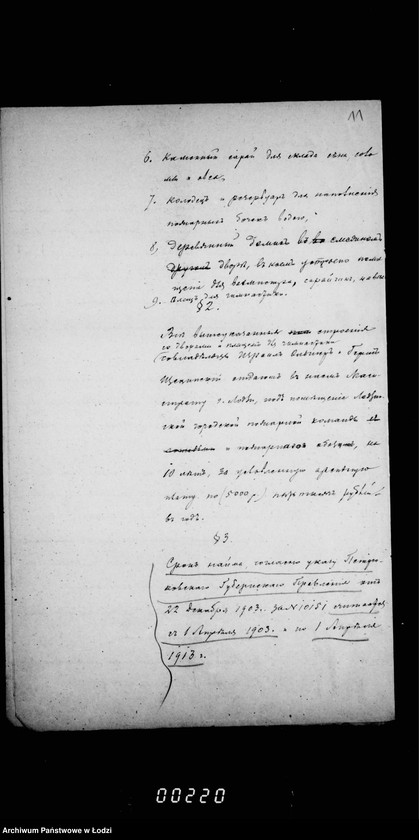 11
6. Каменный сарай для склада сена, соло
мы и овса,
7. Колодец и резервуар для наполнения
пожарных бочек водою,
8, Деревянный домик во смежном
другом дворе, в коем устроено поме
щение для
9. Плац для гимнастики.
§ 2.
Все вышеуказанные строения
со дворами и плацем для гимнастики
Совладельцы Израиль и Герш
отдают в наем Маги
страту г. Лодзи, под помещение Лодзин
ской городской пожарной команды
и пожарного обоза, на
10 лет, за условленную арендную
плату по (5000 р) пять тысяч рублей
в год.
§ 3.
Срок найма, согласно указу Петро
ковского Губернского Правления от
22 Декабря 1903. за N 10151 считается
с 1 Апреля 1903. и по 1 Апреля
1913 г.
00220
Archiwum Państwowe w Łodzi